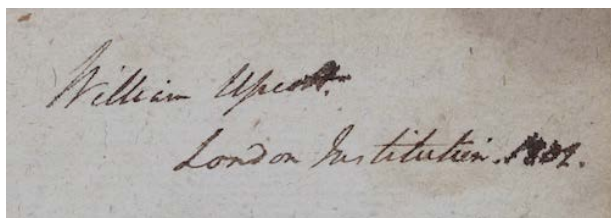 William Upcott.
London Institution.